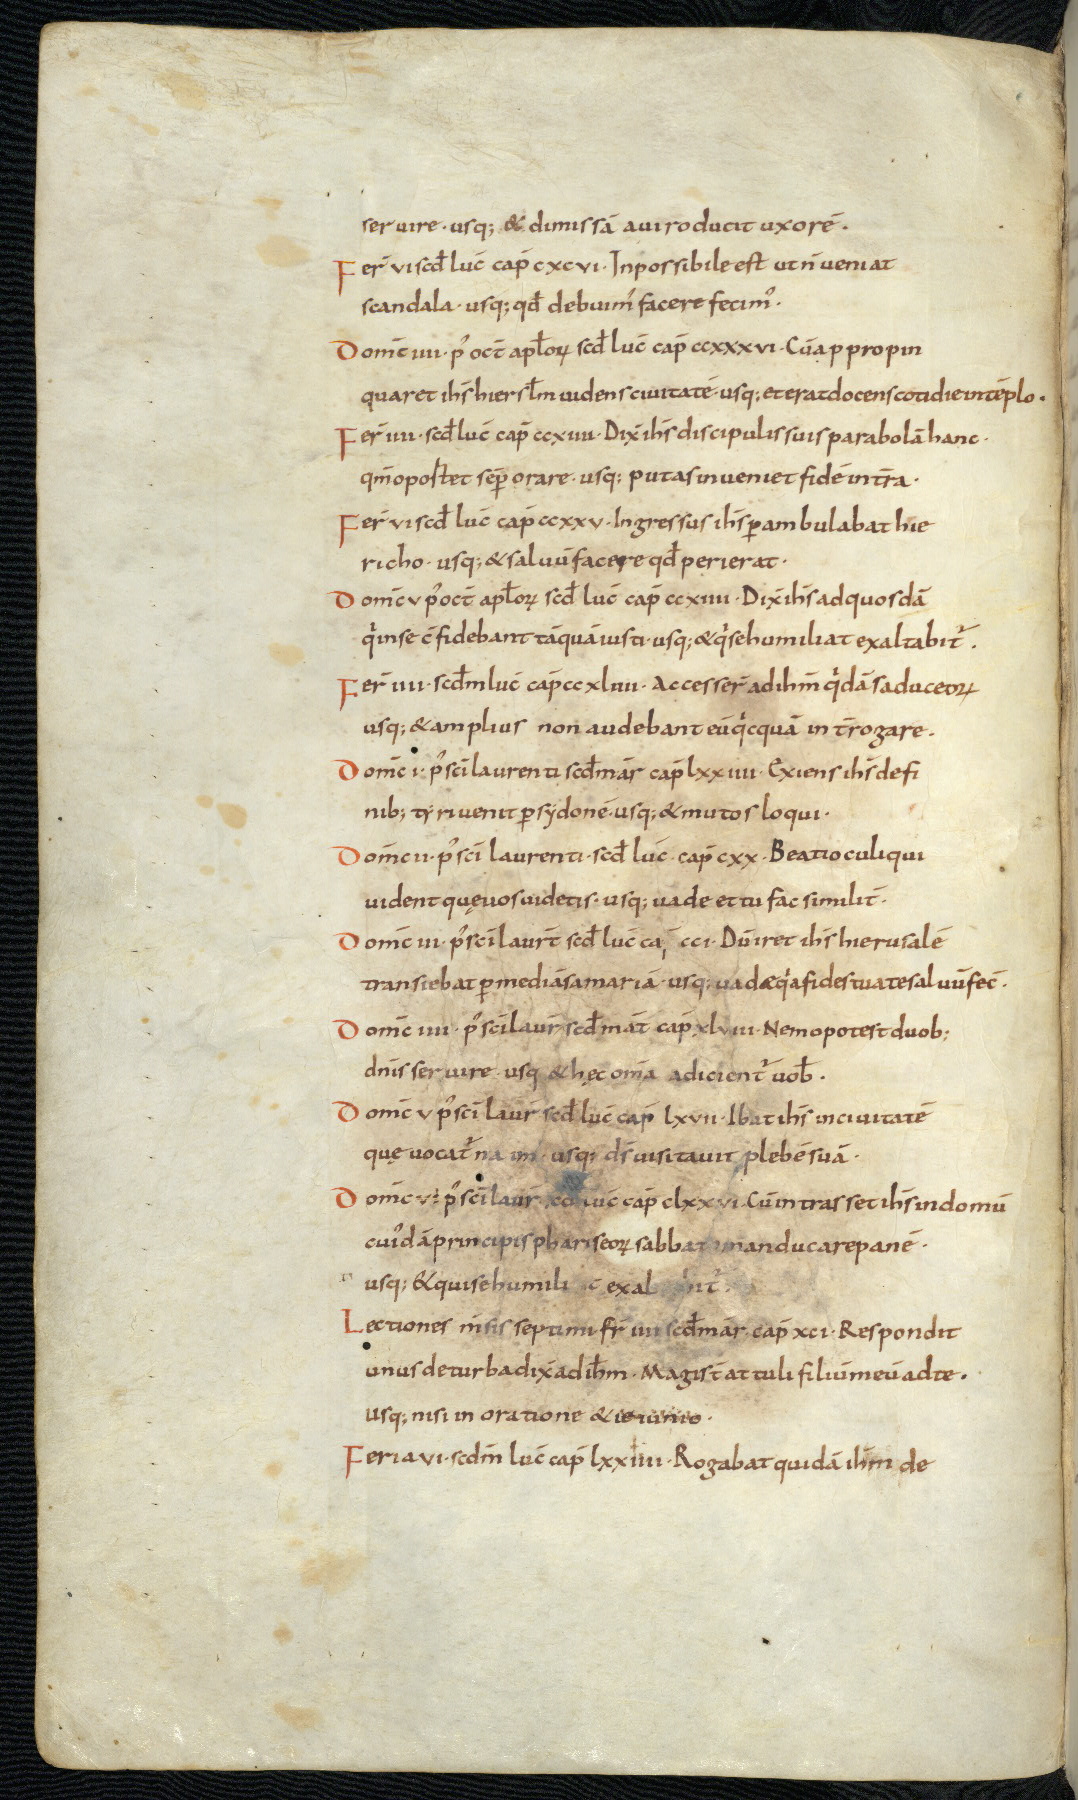 seruire · usq; & dimissā a uiro ducit uxorē ·
Fer̄ vi scđ luc̄ cap̄ cxcvi · Inpossibile est ut n̄ ueniat
scandala · usq; qđ debuim᾽ facere fecim᾽ ·
Domc̄ iiii · p᾽ oct̄ apłoꝝ scđ luc̄ cap̄ ccxxxvi · Cū appropin
quaret ih̄s hiersłm uidens ciuitatē · usq; et erat docens cotidie in tēplo ·
Fer̄ iiii · scđ luc̄ cap̄ ccxiiii · Dix̄ ih̄s discipulis suis parabolā hanc ·
qm̄ oportet sēp orare · usq; putas inueniet fidē in tr̄a ·
Fer̄ vi scđ luc̄ cap̄ ccxxv · Ingressus ih̄s ꝑambulabat hie
richo · usq; & saluū facere qđ perierat ·
Domc̄ v p᾽ oct̄ apłoꝝ scđ luc̄ cap̄ ccxiiii · Dix̄ ih̄s ad quosdā
qͥ in se c̄fidebant tāquā iusti · usq; & qͥ se humiliat exaltabit᾽ ·
Fer̄ iiii · scđm luc̄ cap̄ ccxliiii · Accesser̄ ad ih̄m qͥdā saduceoꝝ
usq; & amplius non audebant eū qͥcquā int̄rogare ·
Domc̄ i · p᾽ sc̄i laurenti scđ mar̄ cap̄ lxxiiii · Exiens ih̄s de fi
nib; tẏri uenit ꝑ sẏdonē · usq; & mutos loqui ·
Domc̄ ii · p᾽ sc̄i laurenti · scđ luc̄ · cap̄ cxx · Beati oculi qui
uident quę uos uidetis · usq; uade et tu fac similit̄ ·
Domc̄ iii · p᾽ sc̄i laur̄t scđ luc̄ ca cci · Dū iret ih̄s hierusalē
transiebat ꝑ mediā samariā · usq; uade qͥa fides tua te saluū fec̄ ·
Domc̄ iiii · p᾽ sc̄i laur̄ scđ mat̄ cap̄ xlviii · Nemo potest duob;
dn̄is seruire usq & hęc om̄a adicient᾽ uob̄ ·
Domc̄ v p᾽ sc̄i laur̄ scđ luc̄ cap̄ lxvii · Ibat ih̄s in ciuitatē
quę uocat᾽ na im · usq; d̄s uisitauit plebē suā ·
Domc̄ vi p᾽ sc̄i laur̄ luc̄ cap̄ clxxvi · Cū intrasset ih̄s in domū
cui᾽dā principis phariseoꝝ sabbat manducare panē ·
usq; & qui se humili t exal bit᾽ ·
Lectiones m̄sis septimi · fr̄ iiii scđ mar̄ · cap̄ xci · Respondit
unus de turba dix̄ ad ih̄m · Magist̄ attuli filiū meū ad te ·
usq; nisi in oratione & ieiunio ·
Feria vi · scd̄m luc̄ cap̄ lxxiiii · Rogabat quidā ih̄m de